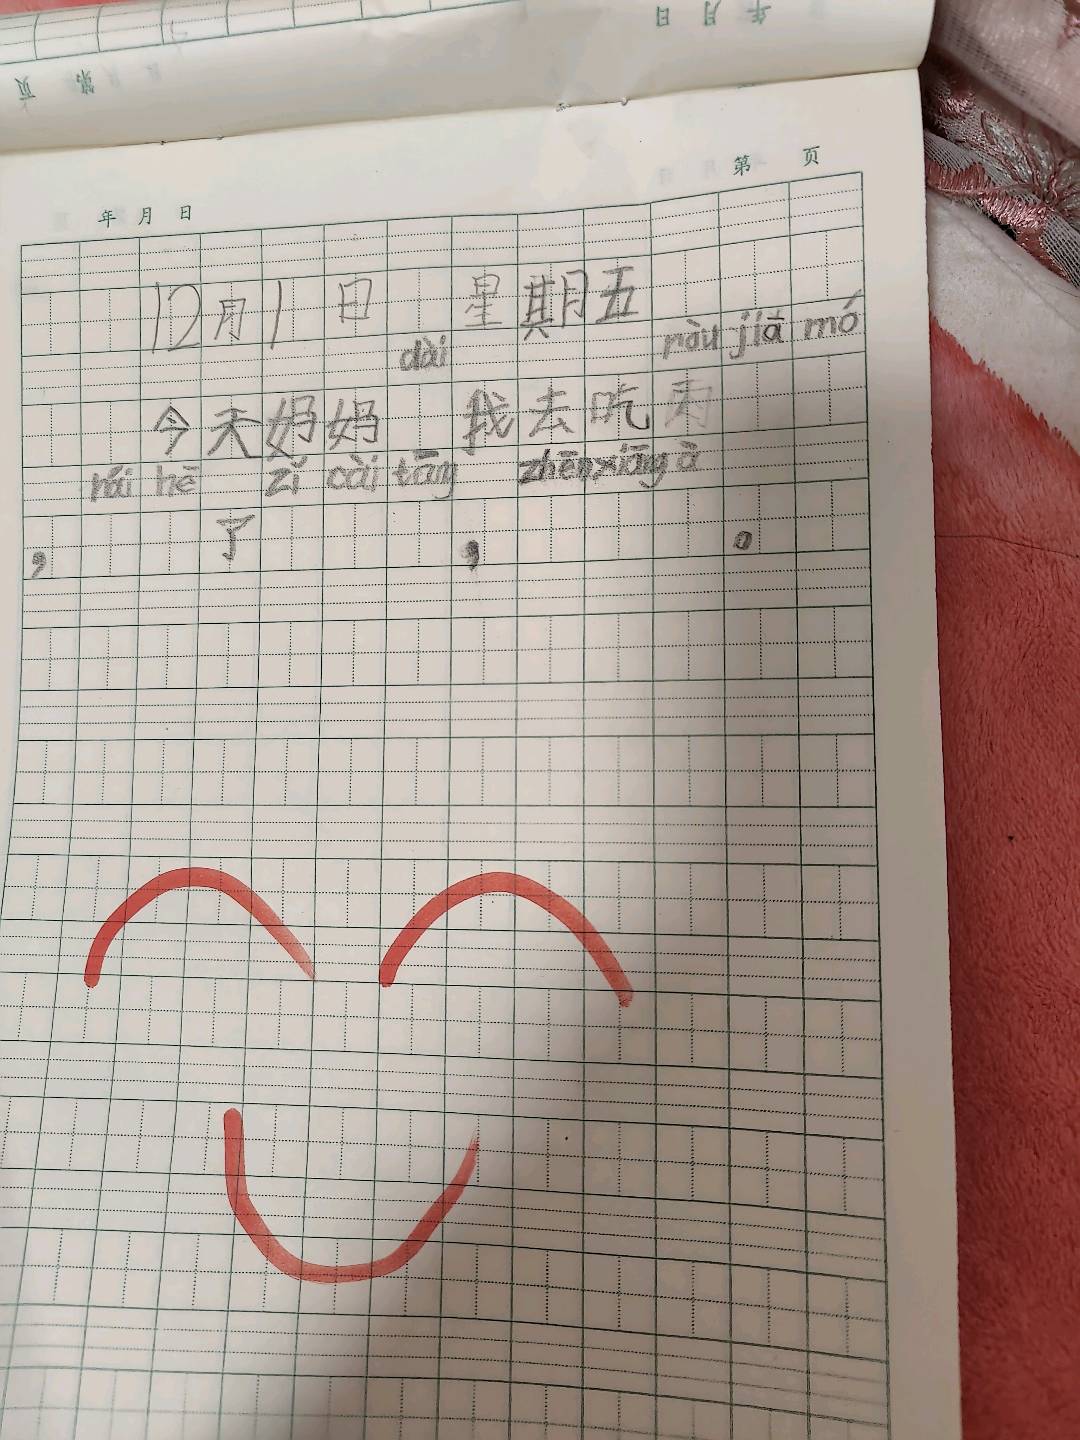 年 月 日
年 月 日 第 页
12月1日 星期五
dài ròu jiā mó
今天妈妈 我去吃肉
hái hē zǐ cài tāng zhēn xiāng à
， 了 ， 。